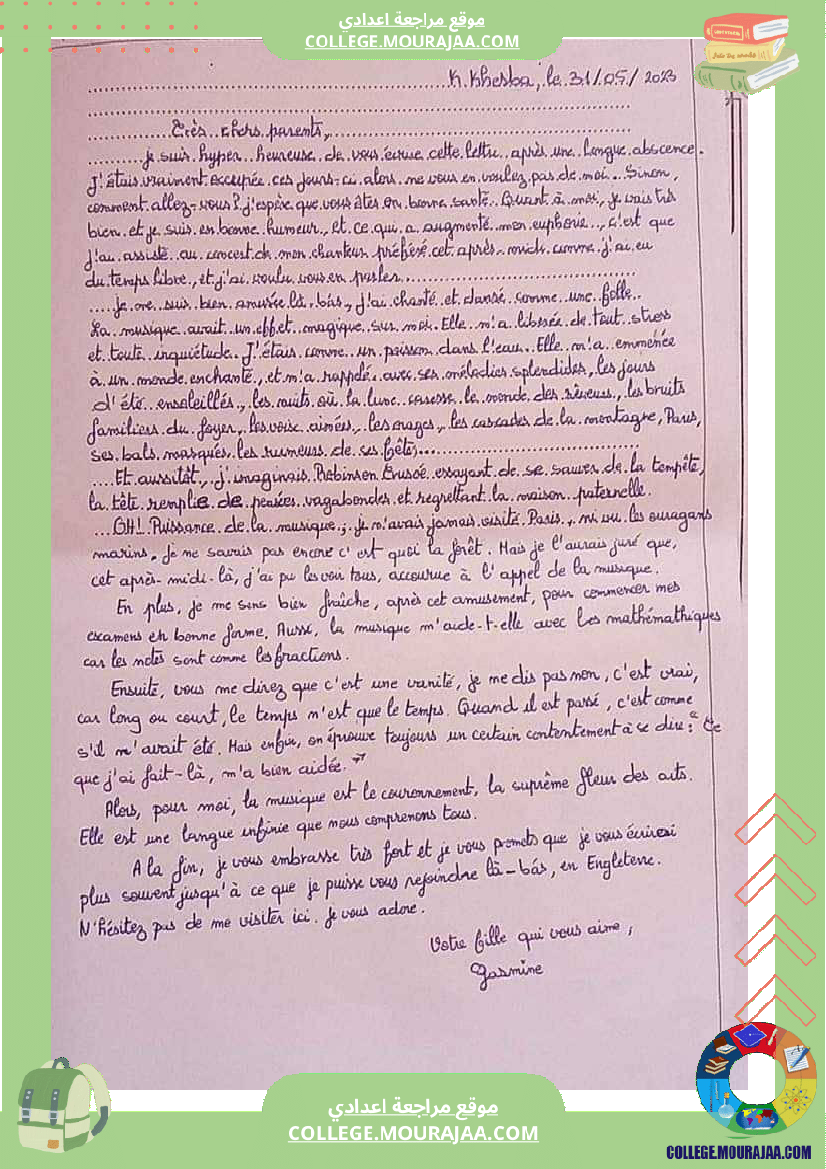 موقع مراجعة اعدادي
COLLEGE.MOURAJAA.COM
K. Kheba, le 31/05/2023
Très chers parents,
Je suis hyper heureuse de vous écrire cette lettre après une longue abscence.
J'étais vraiment occupée ces jours-ci alors ne vous en voulez pas de moi. Sinon,
comment allez-vous? j'espère que vous êtes en bonne santé. Quant à moi, je vais très
bien et je suis en bonne humeur, et ce qui a augmenté mon euphorie, c'est que
j'ai assisté au concert de mon chanteur préféré cet après-midi comme j'ai eu
du temps libre, et j'ai voulu vous en parler.
Je me suis bien amusée là-bàs, j'ai chanté et dansé comme une folle.
La musique avait un effet magique sur moi. Elle m'a libérée de tout stress
et toute inquiétude. J'étais comme un poisson dans l'eau. Elle m'a emmenée
à un monde enchanté, et m'a rappelé, avec ses mélodies splendides, les jours
d'été ensoleillés, les nuits où la lune caresse le monde des rêveurs, les bruits
familiers du foyer, les voix aimées, les orages, les cascades de la montagne, Paris,
ses bals masqués les rumeurs de ses fêtes,
Et aussitôt, j'imaginais Robinson Crusoé essayant de se sauver de la tempête,
la tête remplie de pensées vagabondes et regrettant la maison paternelle.
OH! Puissance de la musique; je n'avais jamais visité Paris, ni vu les ouragans
marins. Je ne savais pas encore c'est quoi la forêt. Mais je l'aurais juré que,
cet après-midi-là, j'ai pu les voir tous, accourue à l'appel de la musique.
En plus, je me sens bien fraîche, après cet amusement, pour commencer mes
examens en bonne forme. Aussi, la musique m'aide-t-elle avec les mathémathiques
car les notes sont comme les fractions.
Ensuite, vous me direz que c'est une vanité, je me dis pas non, c'est vrai,
car long ou court, le temps n'est que le temps. Quand il est passé, c'est comme
s'il n'avait été. Mais enfin, on éprouve toujours un certain contentement à se dire: "Ce
que j'ai fait-là, m'a bien aidée."
Alors, pour moi, la musique est le couronnement, la suprême fleur des arts.
Elle est une langue infinie que nous comprenons tous.
A la fin, je vous embrasse très fort et je vous promets que je vous écrirai
plus souvent jusqu'à ce que je puisse vous rejoindre là-bàs, en Engleterre.
N'hésitez pas de me visiter ici. Je vous adore.
Votre fille qui vous aime,
Jasmine
موقع مراجعة اعدادي
COLLEGE.MOURAJAA.COM
COLLEGE.MOURAJAA.COM